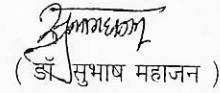 ( डॉ सुभाष महाजन )